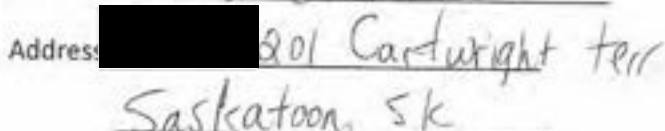 Address 201 Cartwright terr
Saskatoon, SK